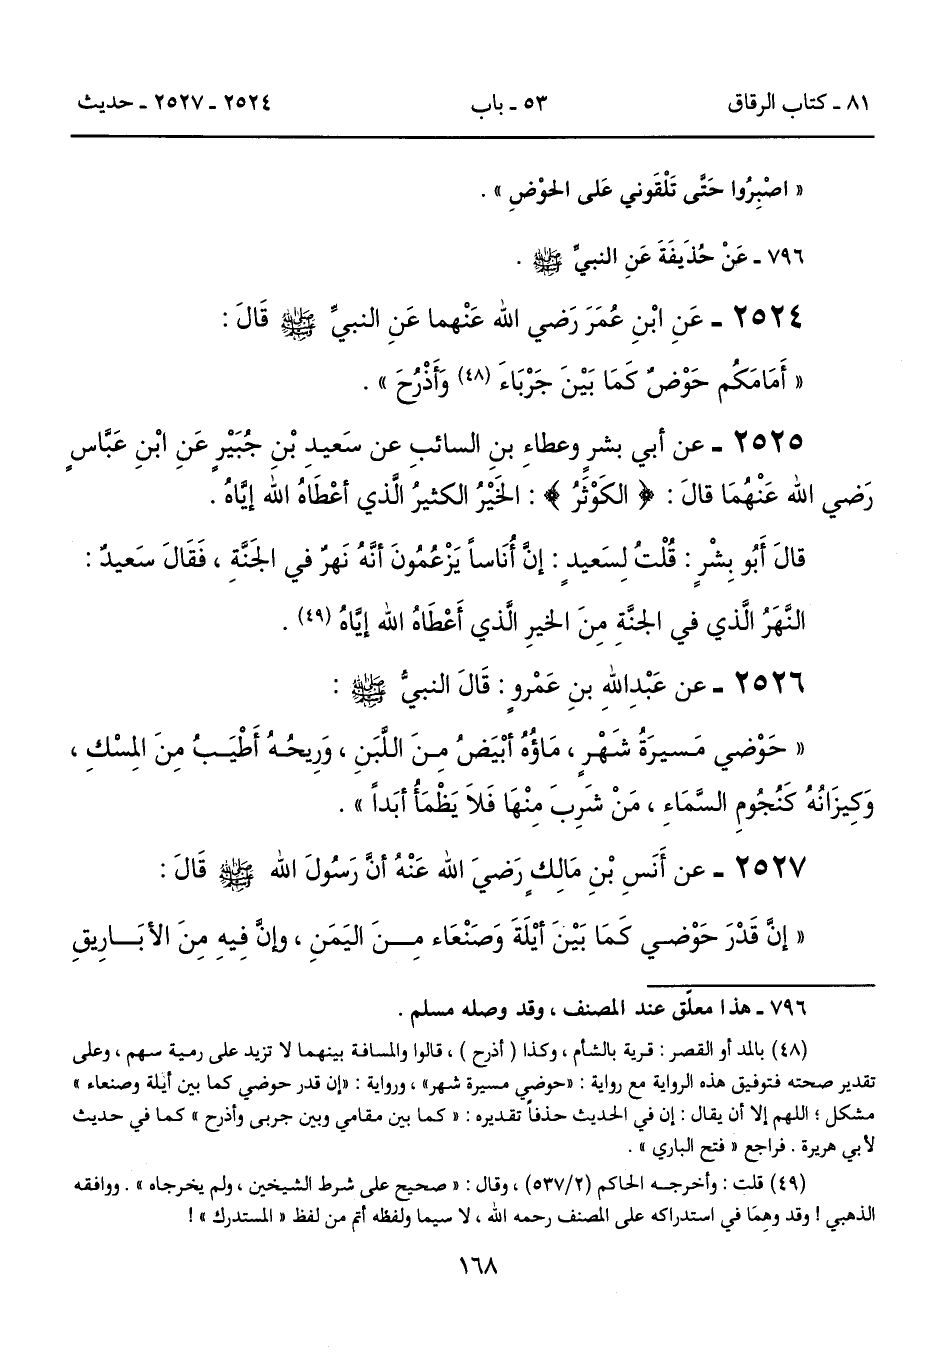 ٨١ ـ كتاب الرقاق ٥٣ ـ باب ٢٥٢٤ ـ ٢٥٢٧ ـ حديث
« اصْبِرُوا حَتَّى تَلْقَوني عَلى الحَوْضِ » .
٧٩٦ ـ عَنْ حُذَيفَةَ عَنِ النبيِّ ﷺ .
٢٥٢٤ ـ عَنِ ابْنِ عُمَرَ رَضي الله عَنْهما عَنِ النبيِّ ﷺ قَالَ :
« أَمَامَكُم حَوْضٌ كَمَا بَيْنَ جَرْبَاءَ (٤٨) وَأَذْرُحَ » .
٢٥٢٥ ـ عن أبي بشرٍ وعطاءِ بنِ السائبِ عن سَعيدِ بْنِ جُبَيْرٍ عَنِ ابْنِ عَبَّاسٍ
رَضي الله عَنْهُمَا قالَ : ﴿ الكَوْثَرُ ﴾ : الخَيْرُ الكثيرُ الَّذي أعْطَاهُ الله إيَّاهُ .
قالَ أَبُو بِشْرٍ : قُلْتُ لِسَعيدٍ : إنَّ أُنَاساً يَزْعُمُونَ أنَّهُ نَهرٌ في الجَنَّةِ ، فَقَالَ سَعيدٌ :
النَّهَرُ الَّذي في الجنَّةِ مِنَ الخيرِ الَّذي أَعْطَاهُ الله إيَّاهُ (٤٩) .
٢٥٢٦ ـ عن عَبْدِالله بنِ عَمْرٍو : قَالَ النبيُّ ﷺ :
« حَوْضي مَسيرَةُ شَهْرٍ ، مَاؤُهُ أبْيَضُ مِنَ اللَّبَنِ ، وَرِيحُهُ أَطْيَبُ مِنَ المِسْكِ ،
وَكِيزَانُهُ كَنُجُومِ السَّمَاءِ ، مَنْ شَرِبَ مِنْهَا فَلاَ يَظْمَأُ أبَداً » .
٢٥٢٧ ـ عن أنَسِ بْنِ مَالِكٍ رَضيَ الله عَنْهُ أنَّ رَسُولَ الله ﷺ قَالَ :
« إنَّ قَدْرَ حَوْضي كَمَا بَيْنَ أيْلَةَ وَصَنْعَاء مِنَ اليَمَنِ ، وإنَّ فيهِ مِنَ الأبَاريقِ
٧٩٦ ـ هذا معلّق عند المصنف ، وقد وصله مسلم .
(٤٨) بالمد أو القصر : قرية بالشأم ، وكذا ( أذرح ) ، قالوا والمسافة بينهما لا تزيد على رمية سهم ، وعلى
تقدير صحته فتوفيق هذه الرواية مع رواية : «حوضي مسيرة شهر» ، ورواية : «إن قدر حوضي كما بين أيلة وصنعاء »
مشكل ؛ اللهم إلا أن يقال : إن في الحديث حذفاً تقديره : « كما بين مقامي وبين جربى وأذرح » كما في حديث
لأبي هريرة . فراجع « فتح الباري » .
(٤٩) قلت : وأخرجه الحاكم (٥٣٧/٢) ، وقال : « صحيح على شرط الشيخين ، ولم يخرجاه » . ووافقه
الذهبي ! وقد وهِمَا في استدراكه على المصنف رحمه الله ، لا سيما ولفظه أتم من لفظ « المستدرك » !
١٦٨